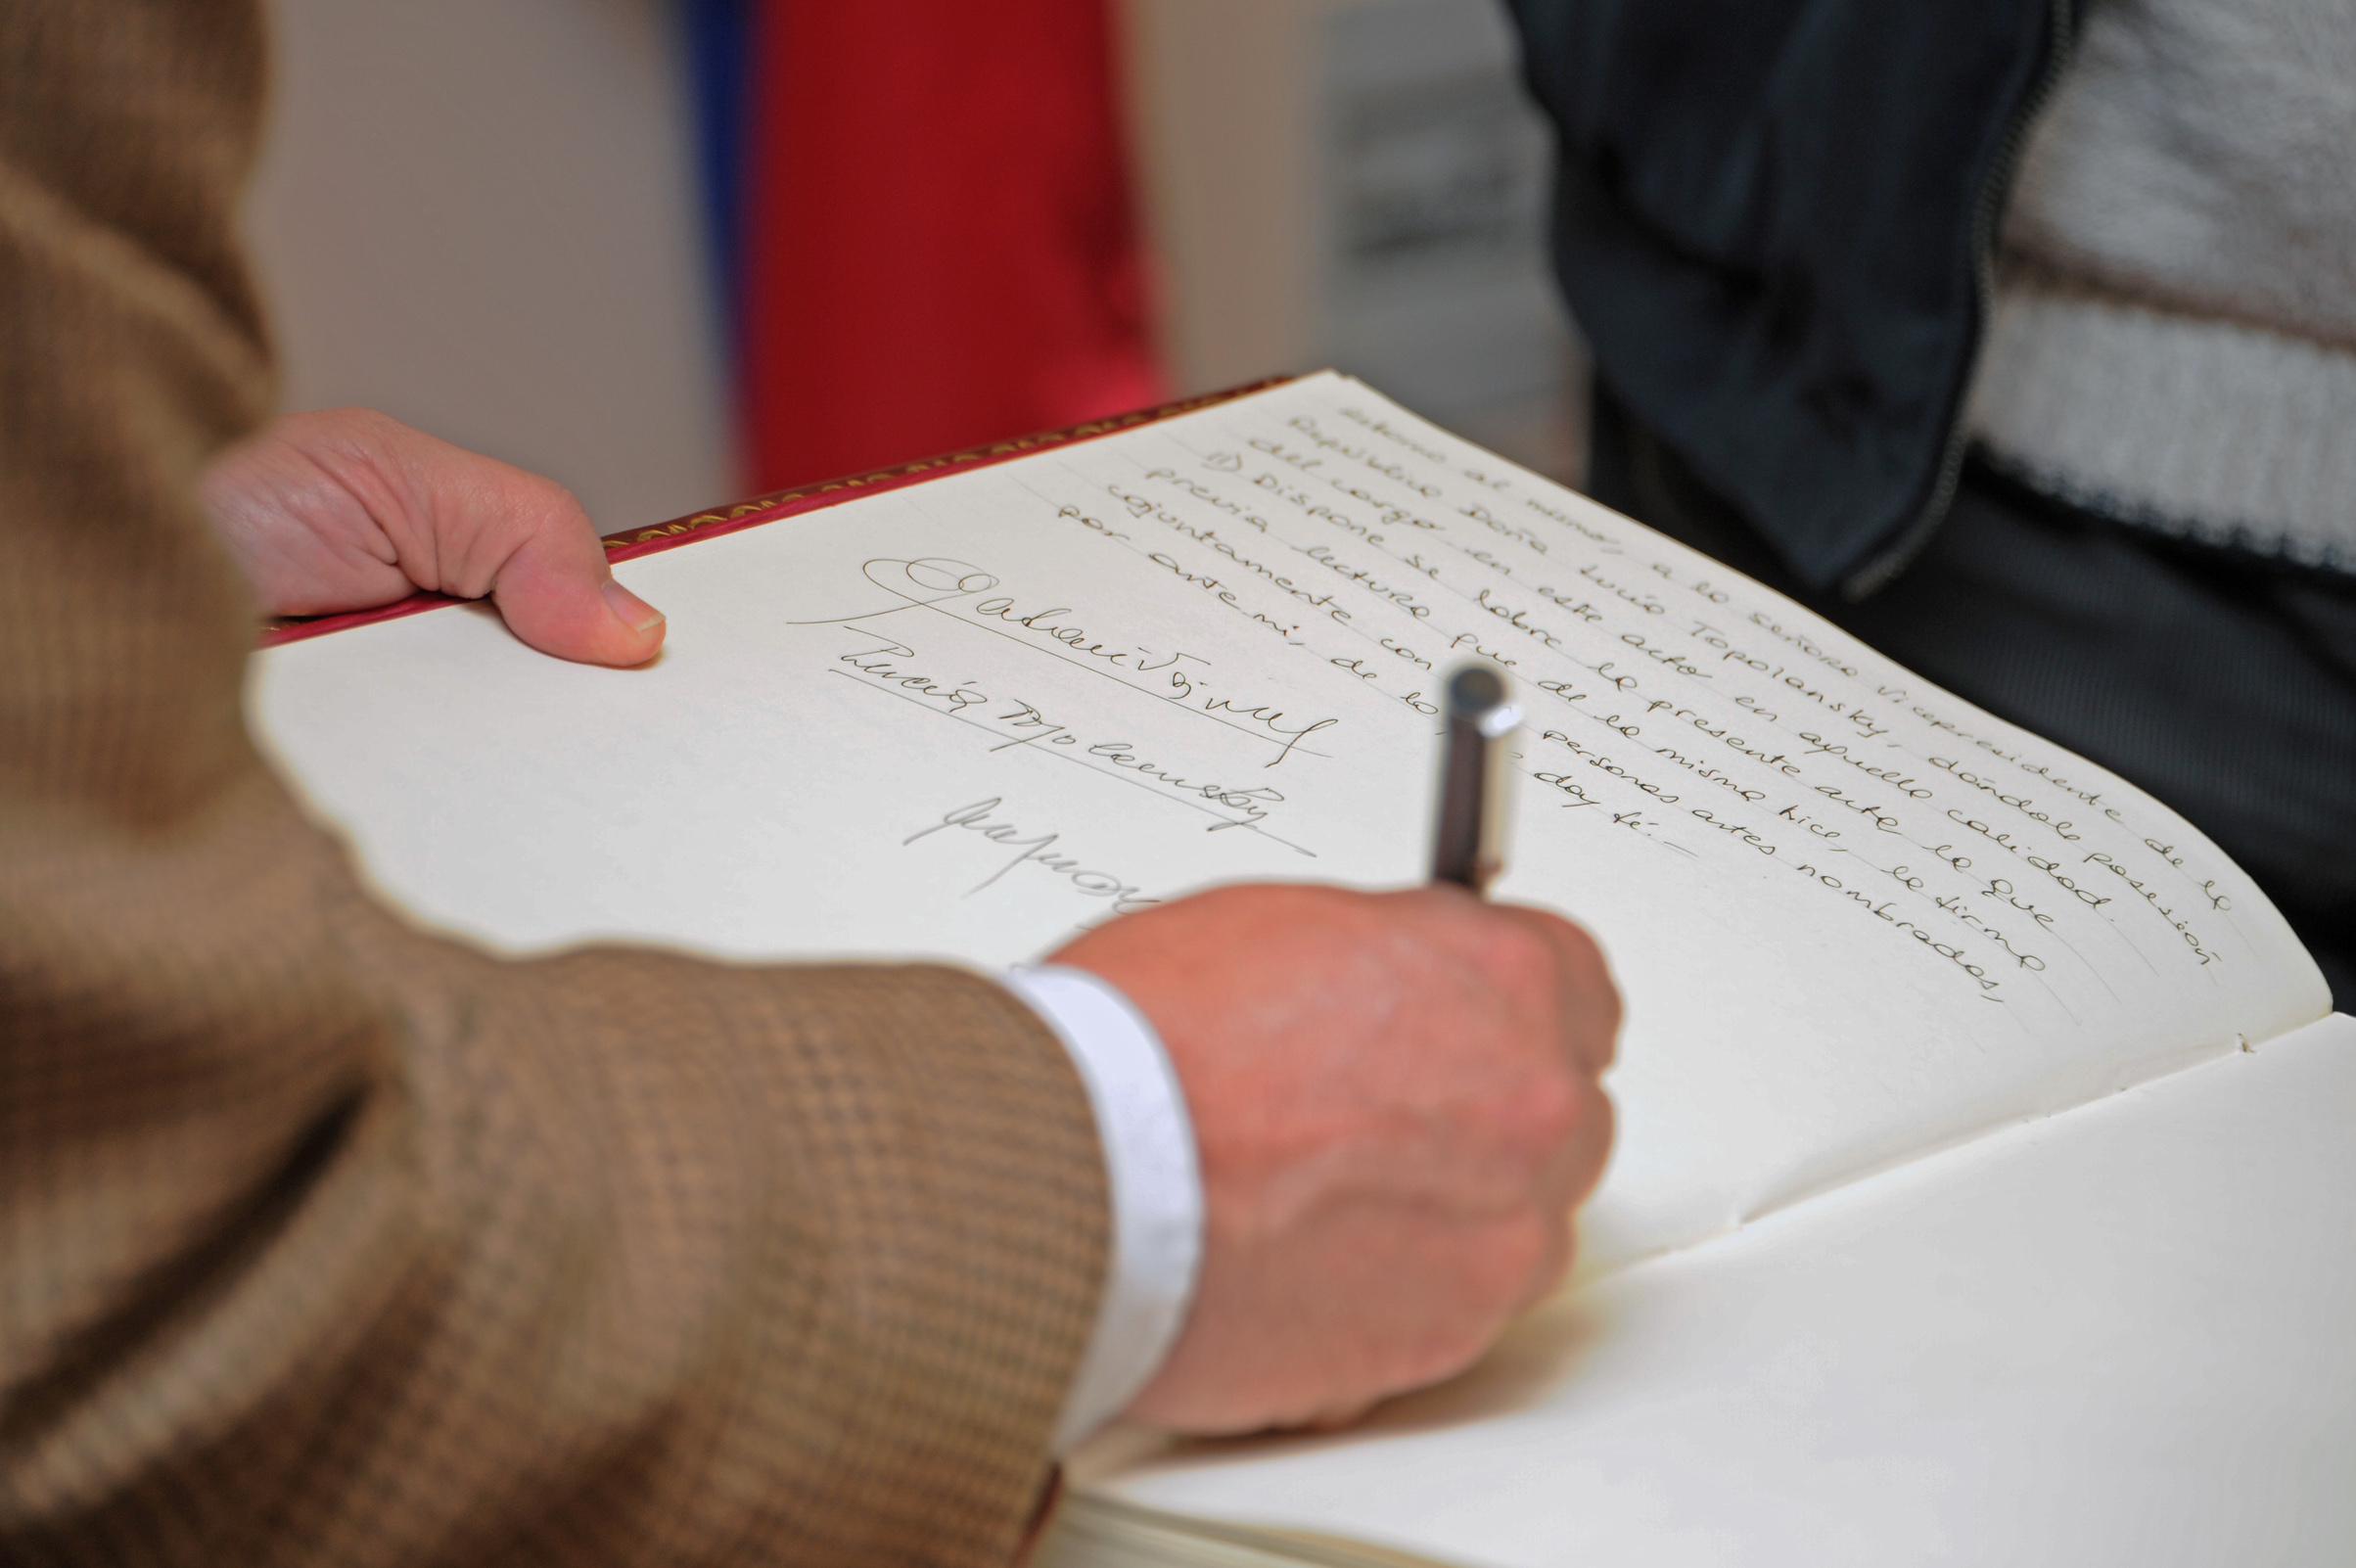 al mismo, a la señora Vicepresidente de la
República Doña Lucía Topolansky, dándole posesión
del cargo en este acto en aquella calidad.
II) Dispone se labre la presente acta la que
previa lectura que de la misma hice, la firma
cojuntamente con personas antes nombradas,
por ante mi, de lo doy fé.=
Lucía Topolansky